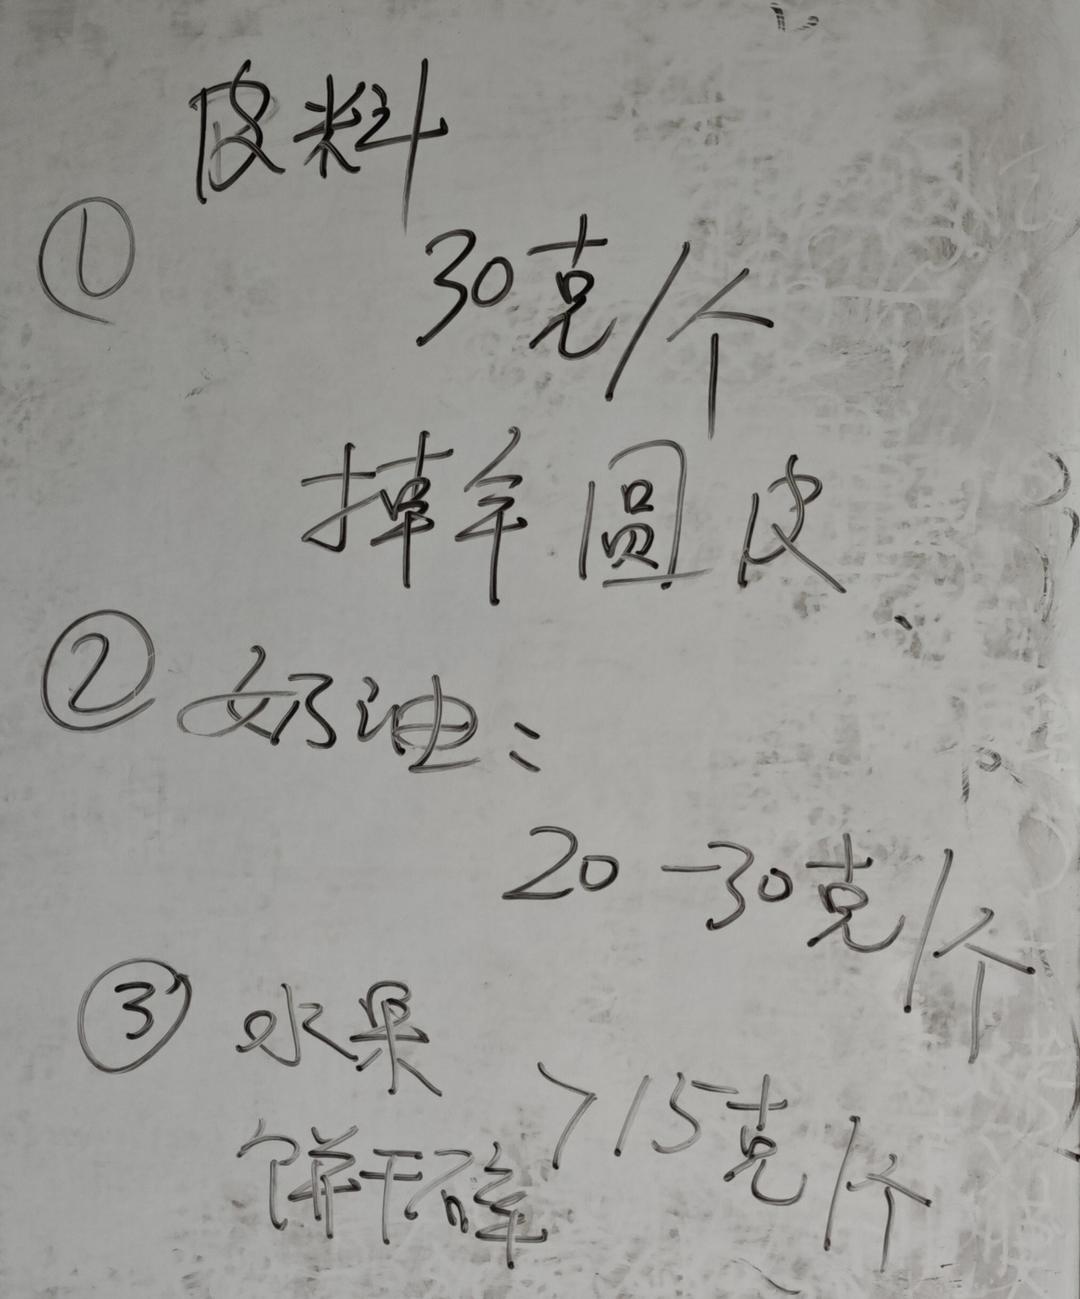 皮料
① 30克/个
擀成圆皮
② 奶油：
20-30克/个
③ 水果
饼干碎 >15克/个